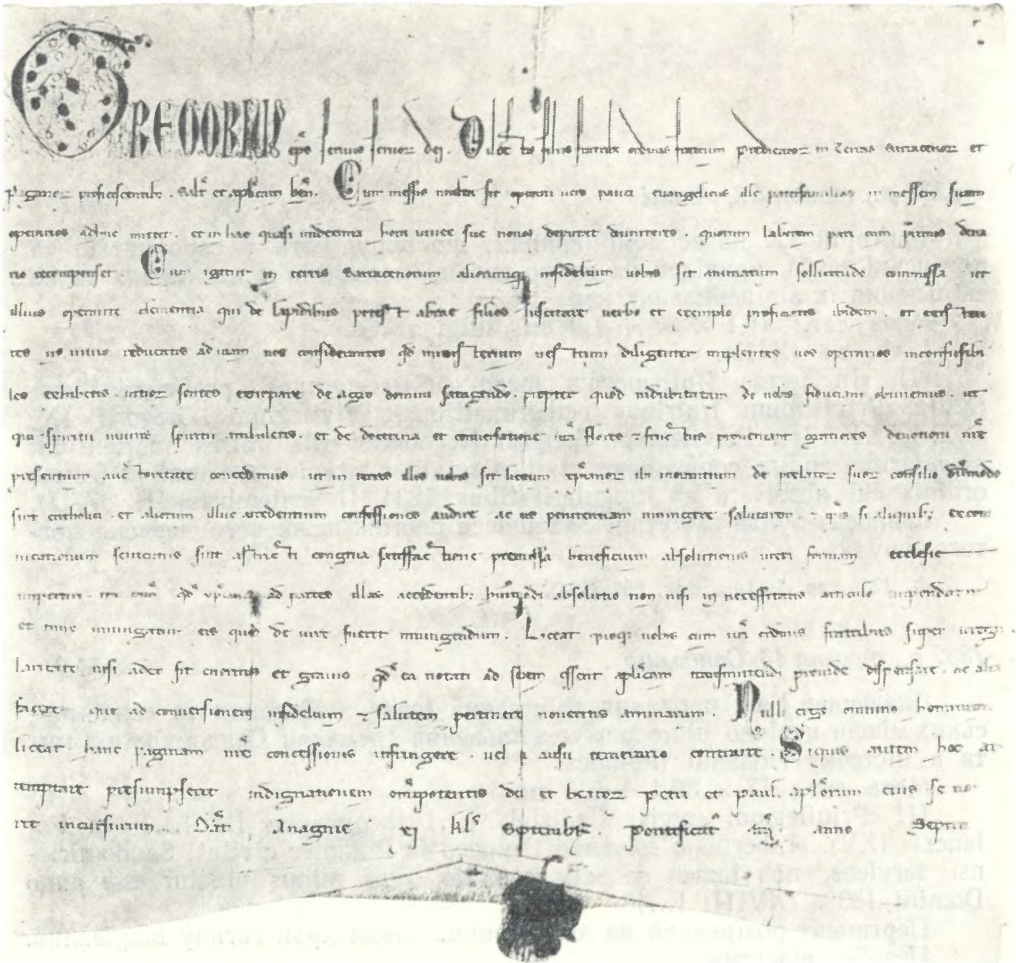 GREGORIUS ep̄s servus servor dei. Dilectis filiis fratrib; ordinis fratrum predicator in terras Sarracenor et
Paganor proficiscentib; salt̄ et aplicam ben̄. Cum messis multa sit operarii vero pauci evangelicus ille paterfamilias in messem suam
operarios adhuc mittit. et in hac quasi undecima hora vinee sue novos deputat cum primis dena
rio recompenset. Cum igitur in terris Sarracenorum aliorumq; infidelium vobis sit animarum sollicitudo commissa ut
illius operante clementia qui de lapidibus potest abrae filios suscitare verbo et exemplo proficiatis ibidem. et
nos considerantes qd̄ ministerium vestrum diligenter implentes vos operarios inconfusibi
les exhibetis. de agro domini satagendo. propter quod indubitatam de vobis fiduciam obtinentes. ut
qui spiritu vivitis spiritu ambuletis. et de doctrina et conversatione vr̄a flores ⁊ fructus proveniant devotioni vr̄e
presentium auctoritate concedimus ut in terris illis vobis sit licitum xp̄ianor ibi morantium de presbiter suor consilio dūmodo
sint catholici. et aliorum illuc accedentium confessiones audire ac eis penitentiam iniungere salutarem. si aliquib; excom
municationum sententiis sint astricti congrua satisfactione premissa beneficium absolutionis iuxta formam ecclesie
impertiri. ita tam̄ qd̄ ad partes illas accedentib; huiusmodi absolutio non nisi in necessitatis articulo impendatur
et tunc iniungatur eis quod de iure fuerit iniungendum. Liceat quoq; vobis cum vr̄i ordinis fratribus super irregu
laritate nisi adeo sit enormis et gravis qd̄ ea notati ad sedem essent aplicam transmittendi provide dispensare. ac alia
facere que ad conversionem infidelium ⁊ salutem pertinere noveritis animarum. Nulli ergo omnino hominum
liceat hanc paginam nr̄e concessionis infringere vel ei ausu temerario contraire. Siquis autem hoc at
temptare presumpserit indignationem omīpotentis dei et beator Petri et Pauli aplorum eius se no
rit incursurum. Dat̄ Anagnie xi kl̄ Septembr̄. Pontificat̄ nr̄i anno Septimo